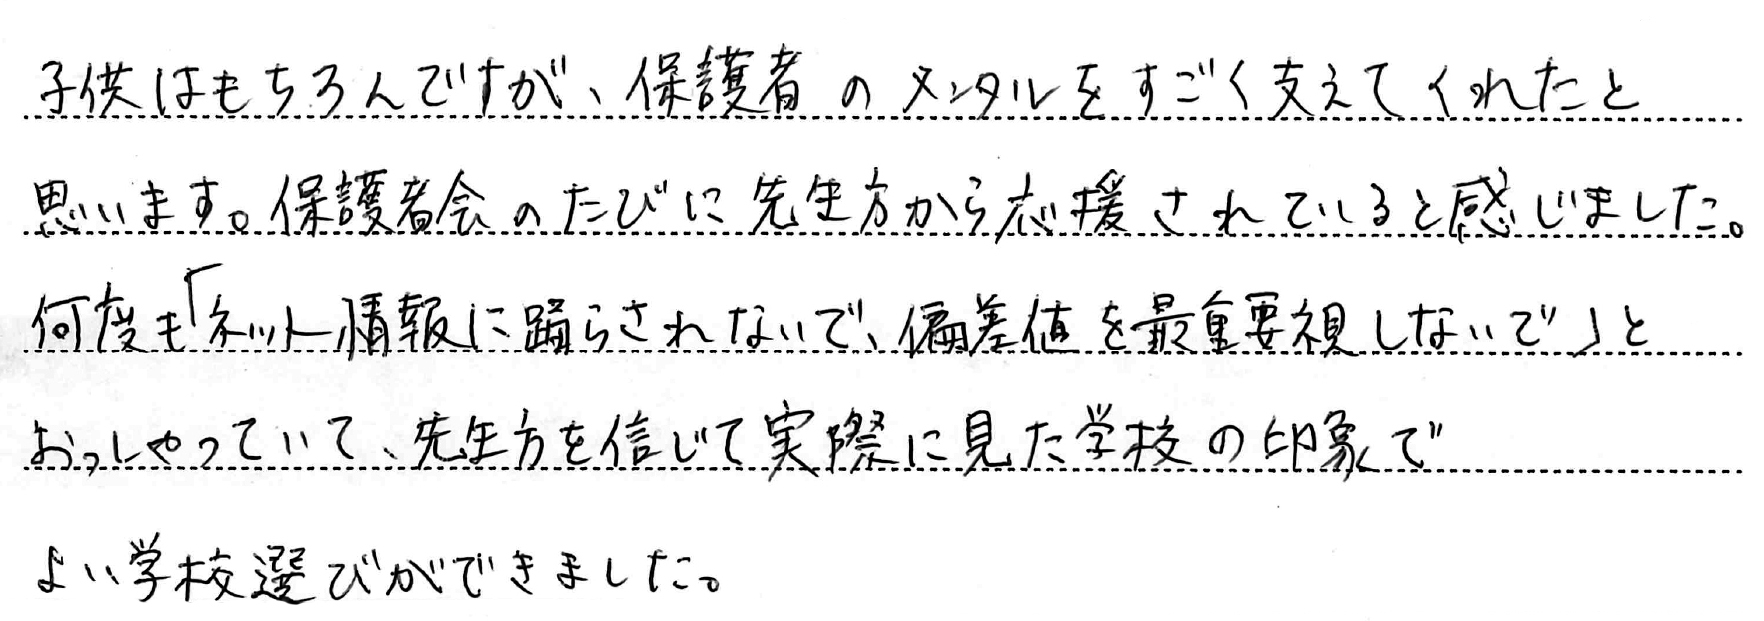 子供はもちろんですが、保護者のメンタルをすごく支えてくれたと
思います。保護者会のたびに先生方から応援されていると感じました。
何度も「ネット情報に踊らされないで、偏差値を最重要視しないで」と
おっしゃっていて、先生方を信じて実際に見た学校の印象で
よい学校選びができました。